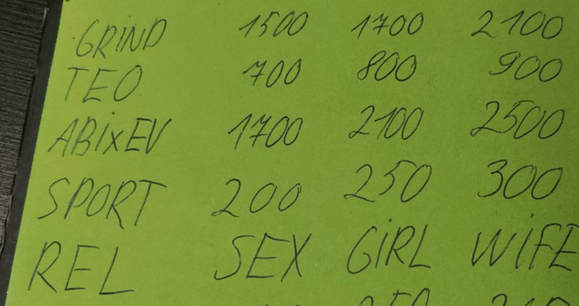 GRiND 1500 1700 2100
TEO 700 800 900
ABixEV 1700 2100 2500
SPORT 200 250 300
REL SEX GiRL WiFE